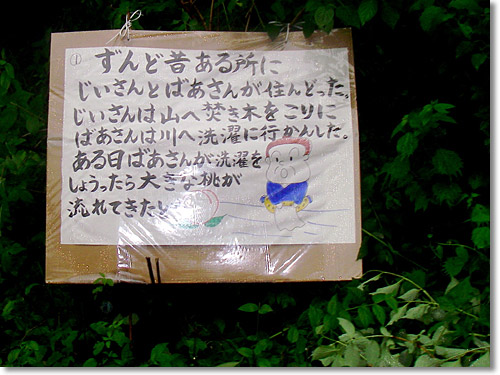 ①
ずんど昔ある所に
じいさんとばあさんが住んどった。
じいさんは山へ焚き木をこりに
ばあさんは川へ洗濯に行かんした。
ある日ばあさんが洗濯を
しょうったら大きな桃が
流れてきた